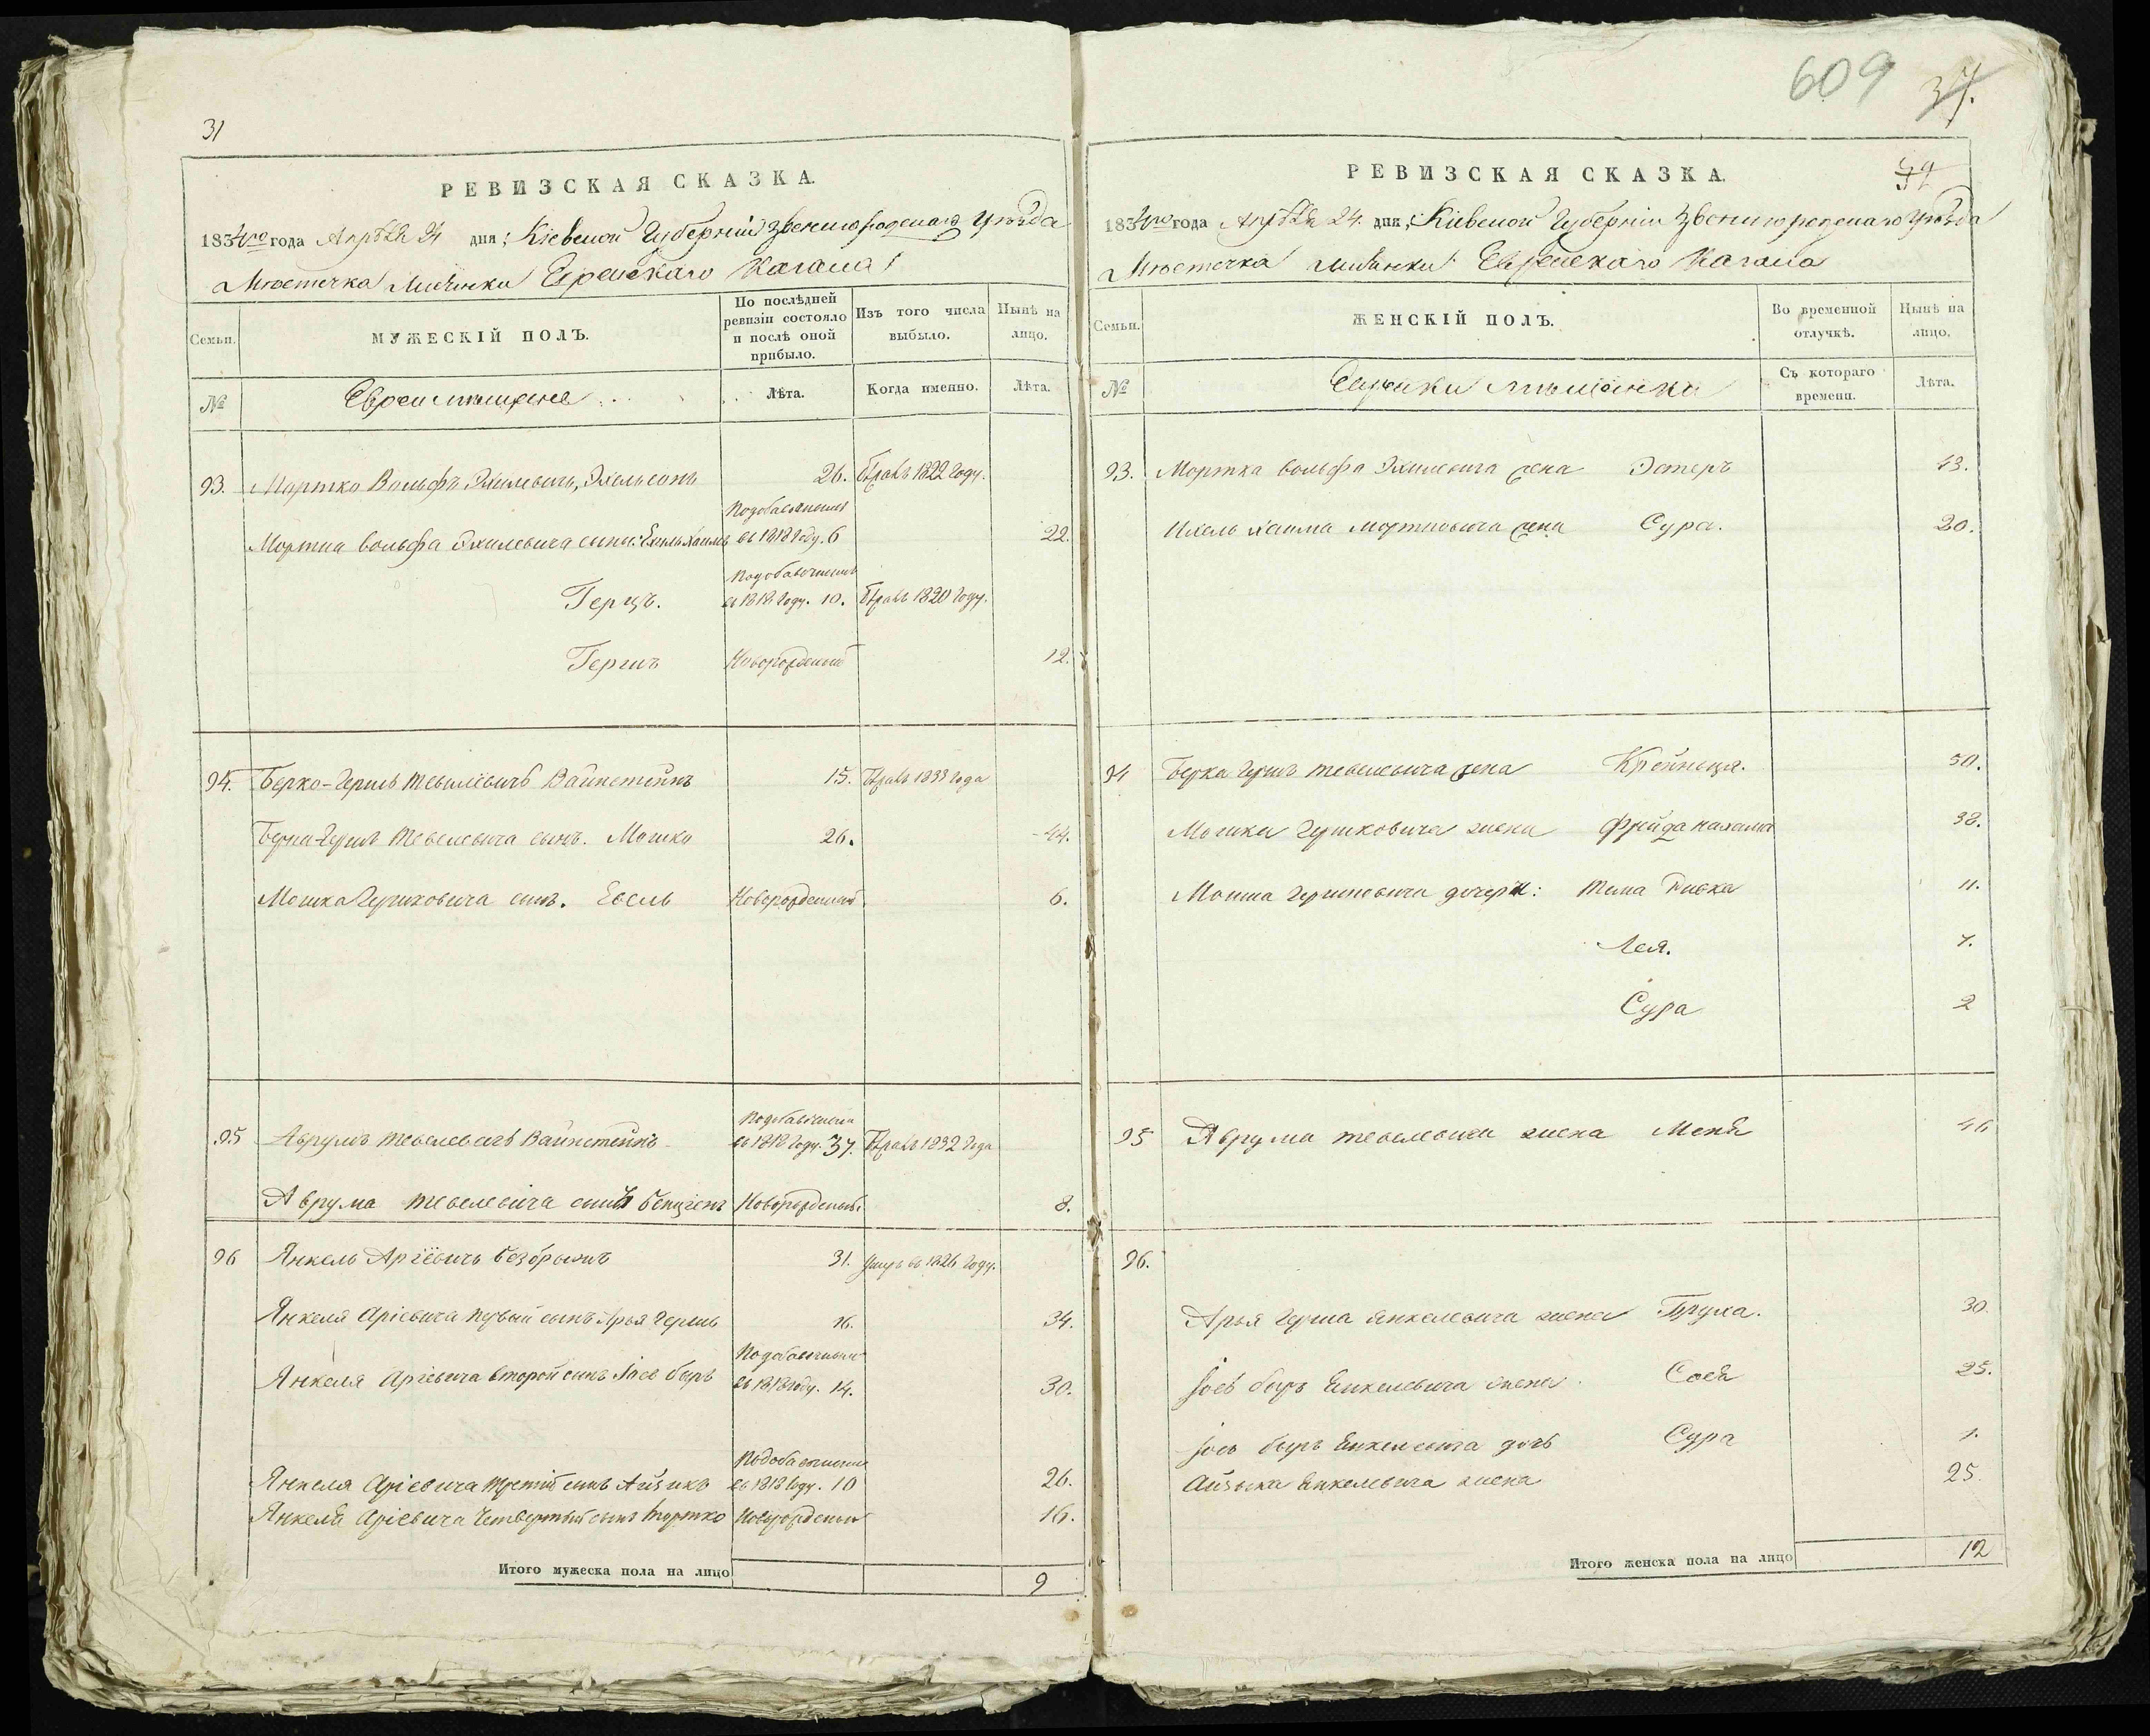 31
РЕВИЗСКАЯ СКАЗКА.
1834го года Апрѣля 24 дня; Кіевской Губерніи Звенигородскаго Уѣзда
Мѣстечка Еврейскаго Кагала
Семьи.
МУЖЕСКІЙ ПОЛЪ.
По послѣдней ревизіи состояло и послѣ оной прибыло.
Изъ того числа выбыло.
Нынѣ на лицо.
№
Евреи мѣщане
Лѣта.
Когда именно.
Лѣта.
93. Мортко Вольфъ 26. 1822 году.
Подобавочныя
Мортка Вольфа сынъ: Хаимъ въ 1818 году. 6 22.
Подобавочныя
Герцъ. въ 1818 году. 10. 1820 году.
Гершъ Новорожденный 12.
94. Берко-Гершъ Тевелевичъ Вайнштейнъ 15. 1833 года
Берка-Герша Тевелевича сынъ. Мошко 26. 44.
Мошка Гершковича сынъ. Евсель Новорожденный. 6.
Подобавочныя
95 Аврумъ Тевелевичъ Вайнштейнъ въ 1818 году. 37. 1832 года
Аврума Тевелевича сынъ Бенціенъ Новорожденный. 8.
96 Янкель Аріевичъ 31. умеръ въ 1826 году.
Янкеля Аріевича первый сынъ Арья Гершъ 16. 34.
Подобавочныя
Янкеля Аріевича второй сынъ Іосъ Беръ въ 1818 году. 14. 30.
Подобавочныя
Янкеля Аріевича третій сынъ Айзикъ въ 1818 году. 10 26.
Янкеля Аріевича Четвертый сынъ Мортко Новорожденный 16.
Итого мужеска пола на лицо 9
609 37.
РЕВИЗСКАЯ СКАЗКА.
1834го года Апрѣля 24. дня; Кіевской Губерніи Звенигородскаго Уѣзда
Мѣстечка Еврейскаго Кагала
Семьи.
ЖЕНСКІЙ ПОЛЪ.
Во временной отлучкѣ.
Нынѣ на лицо.
№
Еврейки мѣщанки
Съ котораго времени.
Лѣта.
93. Мортка Вольфа жена Эстеръ 43.
Хаима Мортковича жена Сура. 20.
94 Берка Герша Тевелевича жена Крейнеця. 50.
Мошка Гершковича жена Фрейда 38.
Мошка Гершковича дочери: Тема Ривка 11.
Лея. 7.
Сура 2
95 Аврума Тевелевича жена Меня 46
96.
Арья Герша Янкелевича жена Бруха. 30.
Іосъ Беръ Янкелевича жена Сося 25.
Іосъ Беръ Янкелевича дочь Сура 1.
Айзыка Янкелевича жена 25.
Итого женска пола на лицо 12